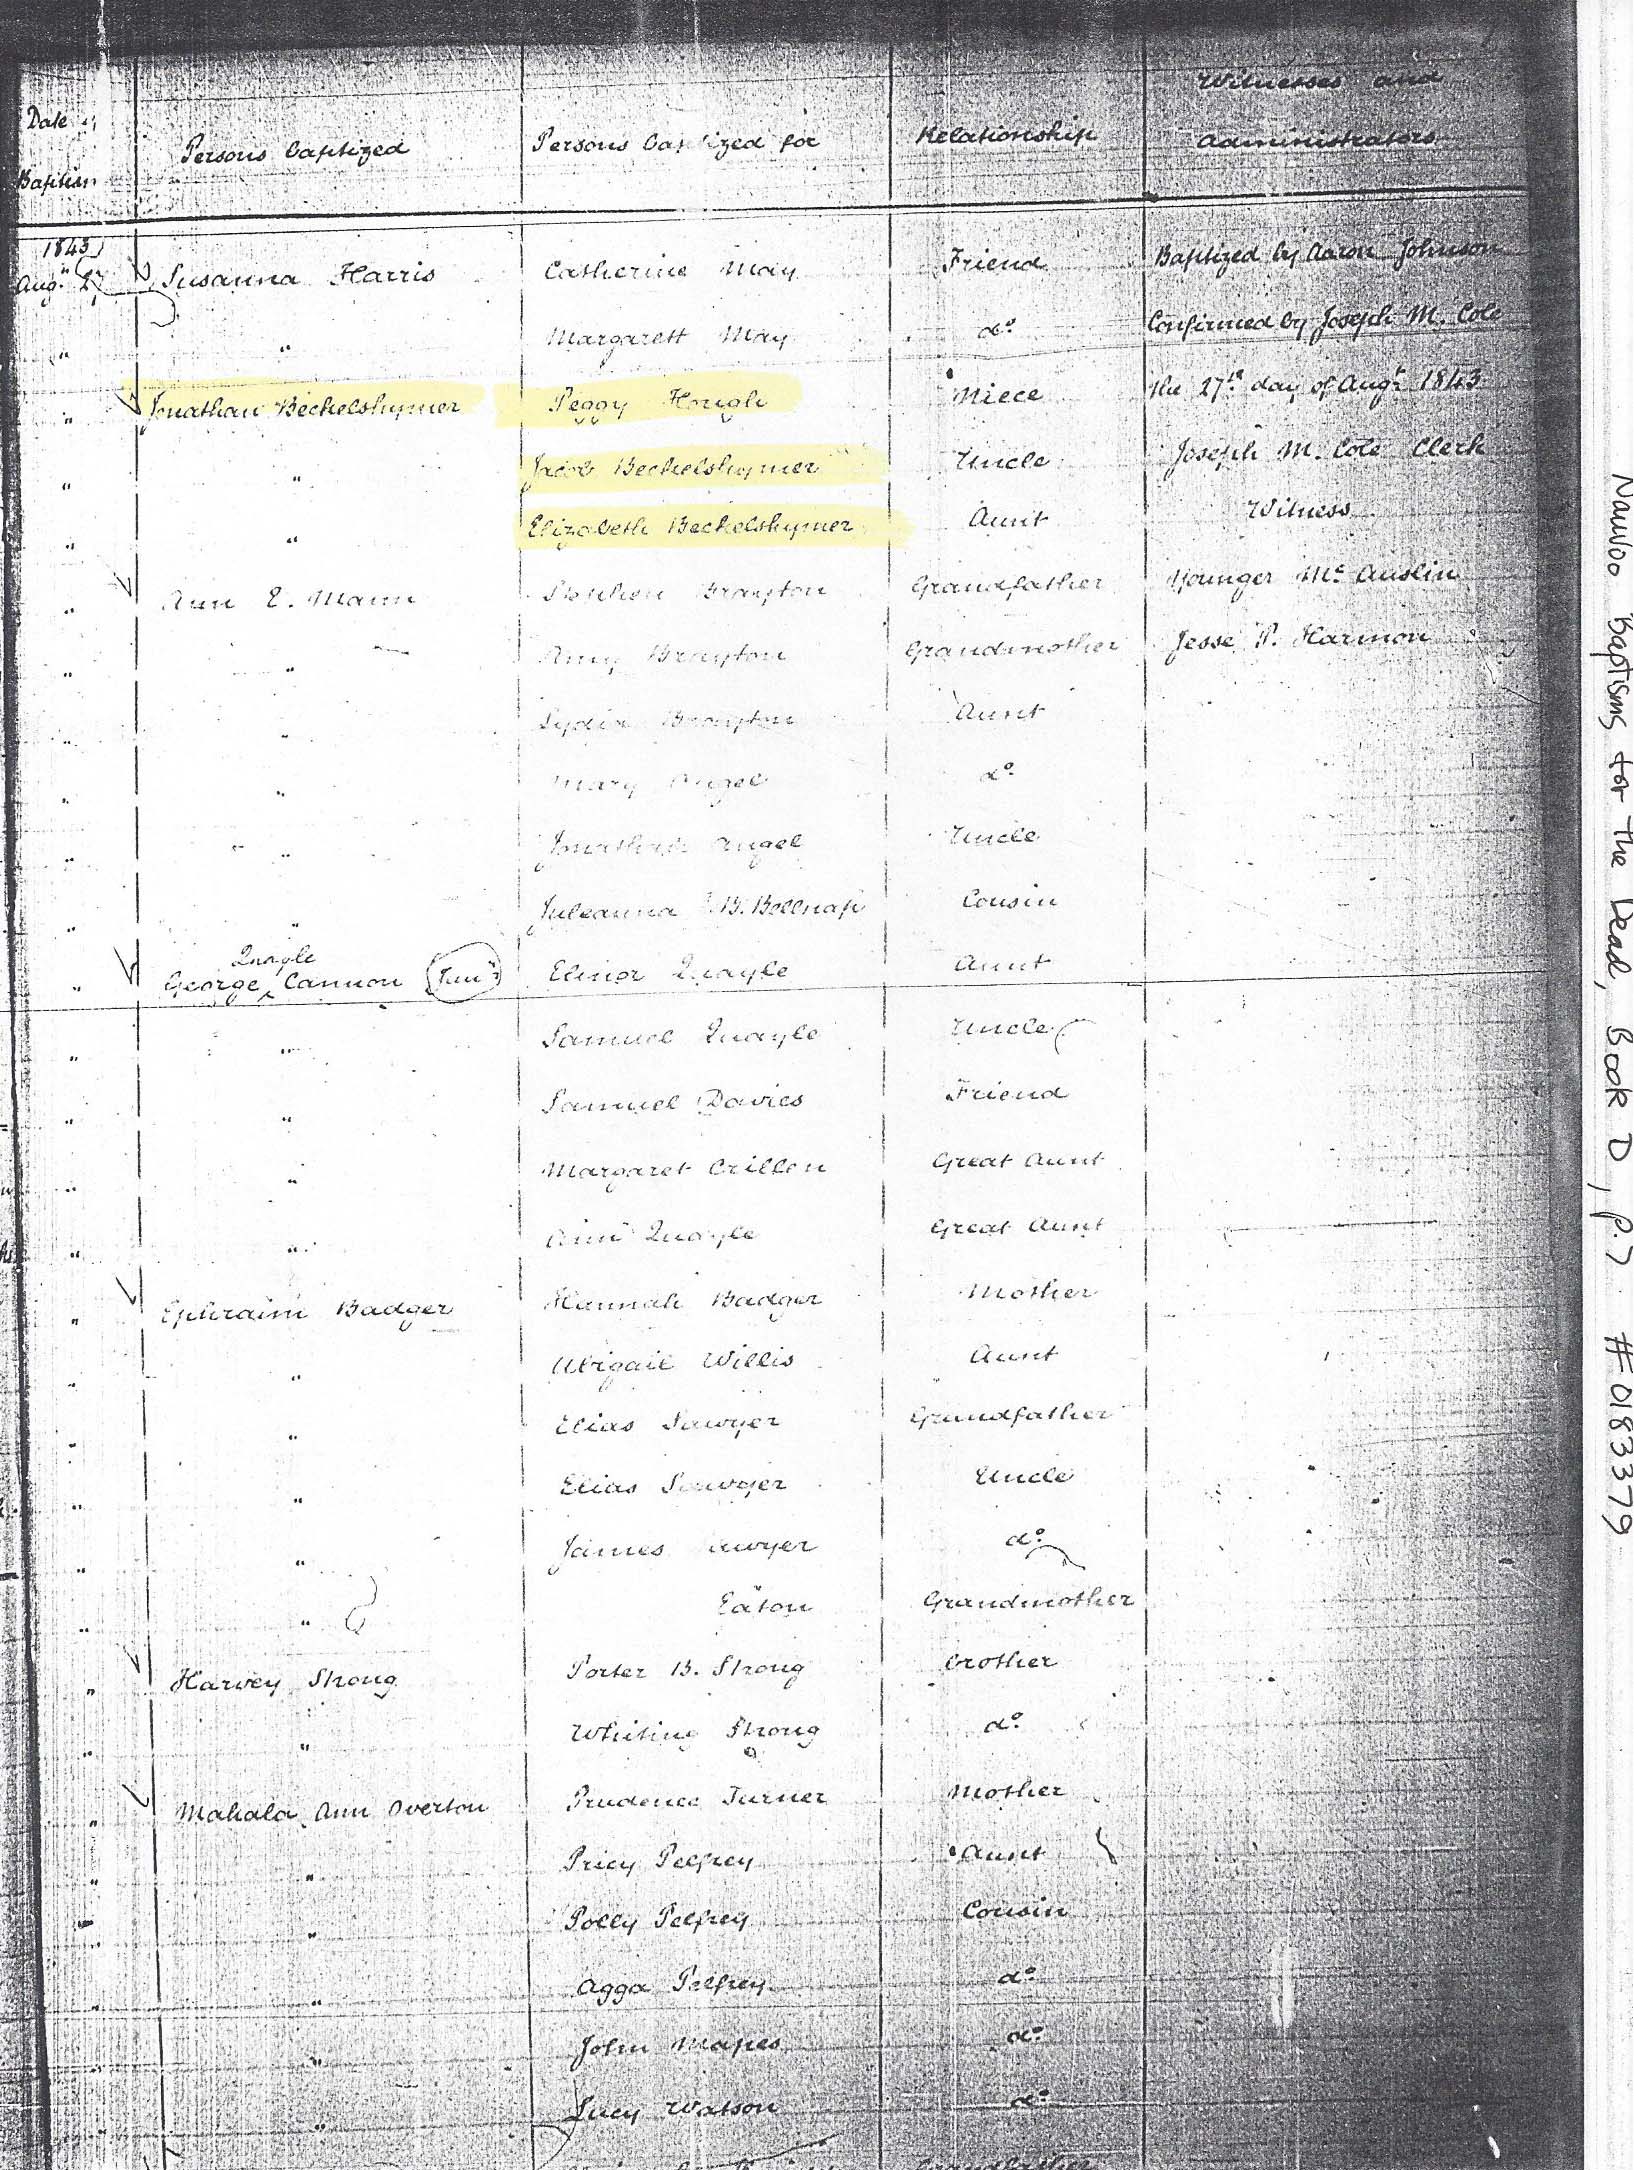 Witnesses and
Date of Persons baptized Persons baptized for Relationship Administrators
Baptism
1843
Aug.t 27 Susanna Harris Catherine May Friend Baptized by Aaron Johnson
" " Margarett May do. Confirmed by Joseph M. Cole
" Jonathan Beckelshymer Peggy Hough Niece the 27th day of Augt 1843
" " Jacob Beckelshymer Uncle Joseph M. Cole Clerk
" " Elizabeth Beckelshymer Aunt Witness
" Ann E. Mann Stephen Brayton Grandfather Younger Mc Auslin
" " Amy Brayton Grandmother Jesse P. Harmon
" " Lydia Brayton Aunt
" " Mary Angel do.
" " Jonathan Angel Uncle
" " Juleanna B. Bellnap Cousin
Quayle
" George ‸ Cannon Junr Elinor Quayle Aunt
" " Samuel Quayle Uncle
" " Samuel Davies Friend
" " Margaret Crillen Great Aunt
" " Ann Quayle Great Aunt
" Ephraim Badger Hannah Badger Mother
" " Abigail Willis Aunt
" " Elias Sawyer Grandfather
" " Elias Sawyer Uncle
" " James Sawyer do.
" " Eaton Grandmother
" Harvey Strong Porter B. Strong brother
" " Whiting Strong do.
" Mahala Ann Overton Prudence Turner Mother
" " Pricy Pelfrey Aunt
" " Polly Pelfrey Cousin
" " Agga Pelfrey do.
" " John Mapes do.
" " Lucy Watson do.
Grandfather
Nauvoo Baptisms for the Dead, Book D, p.7 #0183379